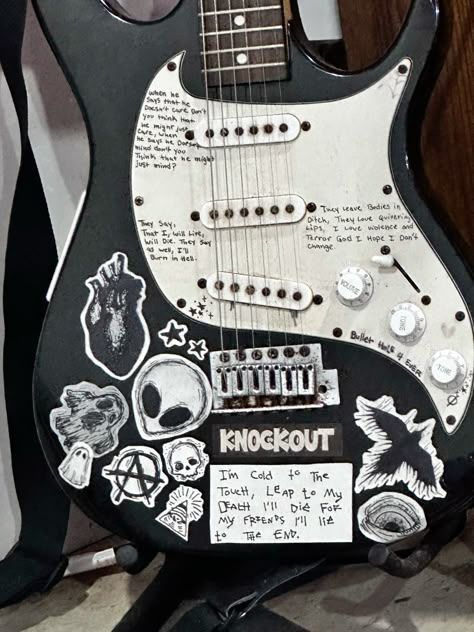 When he
Says that he
Doesn't care Don't
you think that
he might just
Care, when
he says he Doesn't
mind don't you
Think that he might
just mind?
They Say,
That I, Will Lite,
Will Die. They Say
as well, I'll
Burn in Hell.
They leave Bodies in
Ditch, They Love Quivering
Lips, I Love violence and
Terror God I Hope I Don't
change.
VOLUME
TONE
TONE
Bullet Hole 4 Ever
KNOCKOUT
I'm Cold to The
Touch, LEAP to My
DEATH I'll DIE FOR
My FRIENDS I'll lie
to THE END.